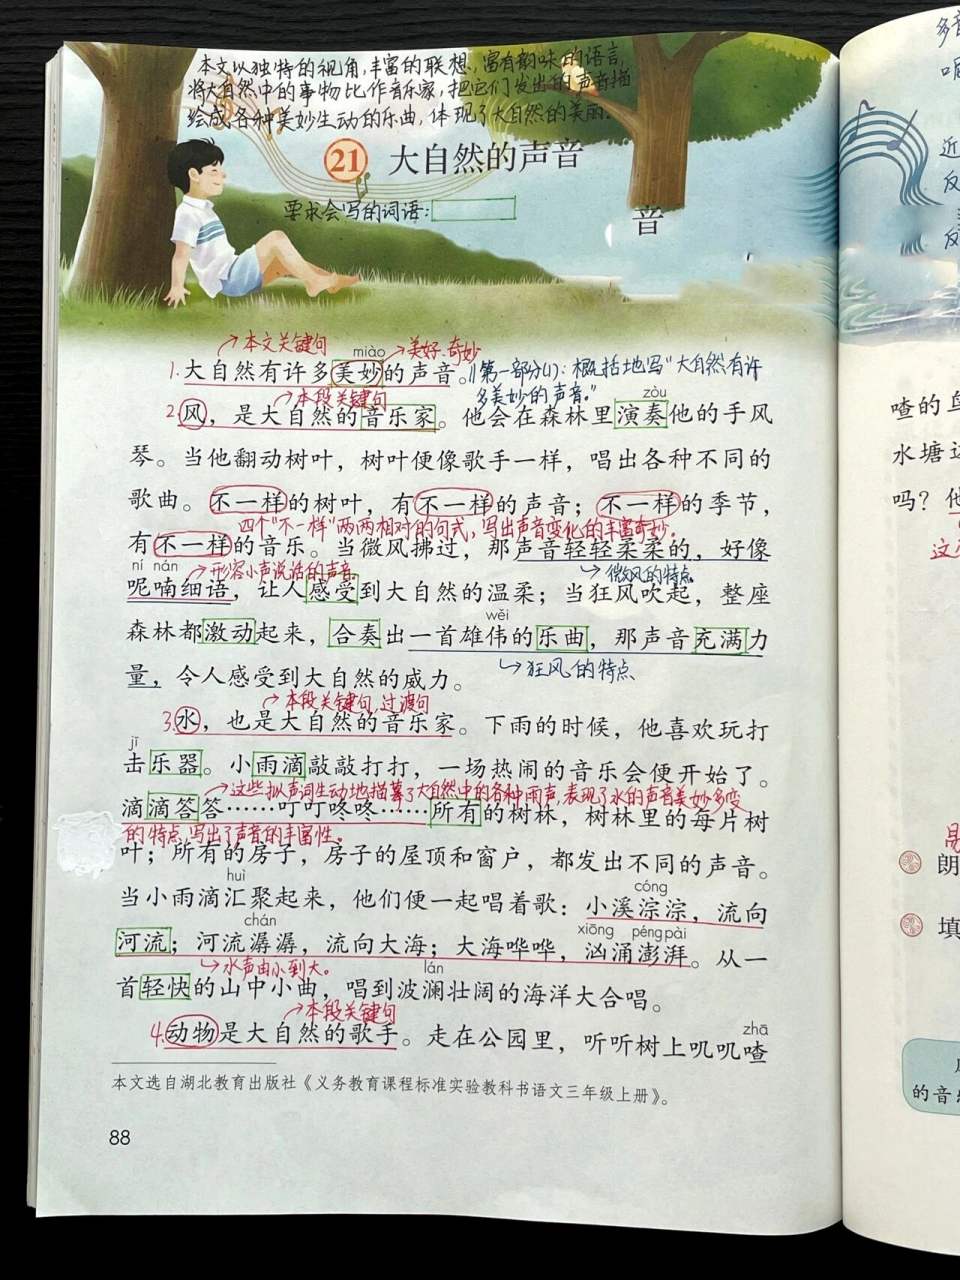 本文以独特的视角,丰富的联想,富有韵味的语言,
将大自然中的事物比作音乐家,把它们发出的声音描
绘成各种美妙生动的乐曲,体现了大自然的美丽。
21 大自然的声音
要求会写的词语:
音
本文关键句
miào
美好、奇妙
1.大自然有许多美妙的声音。
第一部分(1):概括地写“大自然有许
多美妙的声音。”
本段关键句
zòu
2.风,是大自然的音乐家。他会在森林里演奏他的手风
琴。当他翻动树叶,树叶便像歌手一样,唱出各种不同的
歌曲。不一样的树叶,有不一样的声音;不一样的季节,
四个“不一样”两两相对的句式,写出声音变化的丰富奇妙。
有不一样的音乐。当微风拂过,那声音轻轻柔柔的,好像
ní nán
形容小声说话的声音。
微风的特点
呢喃细语,让人感受到大自然的温柔;当狂风吹起,整座
wěi
森林都激动起来,合奏出一首雄伟的乐曲,那声音充满力
狂风的特点
量,令人感受到大自然的威力。
本段关键句,过渡句
3.水,也是大自然的音乐家。下雨的时候,他喜欢玩打
jī
击乐器。小雨滴敲敲打打,一场热闹的音乐会便开始了。
这些拟声词生动地描摹了大自然中的各种雨声,表现了水的声音美妙多变
滴滴答答……叮叮咚咚……所有的树林,树林里的每片树
的特点,写出了声音的丰富性。
叶;所有的房子,房子的屋顶和窗户,都发出不同的声音。
huì
当小雨滴汇聚起来,他们便一起唱着歌:小溪淙淙,流向
cóng
chán
xiōng péng pài
河流;河流潺潺,流向大海;大海哗哗,汹涌澎湃。从一
水声由小到大。
lán
首轻快的山中小曲,唱到波澜壮阔的海洋大合唱。
本段关键句
4.动物是大自然的歌手。走在公园里,听听树上叽叽喳
zhā
本文选自湖北教育出版社《义务教育课程标准实验教科书语文三年级上册》。
88
多音
近
反
反
喳的鸟
水塘边
吗?
朗
填
的音